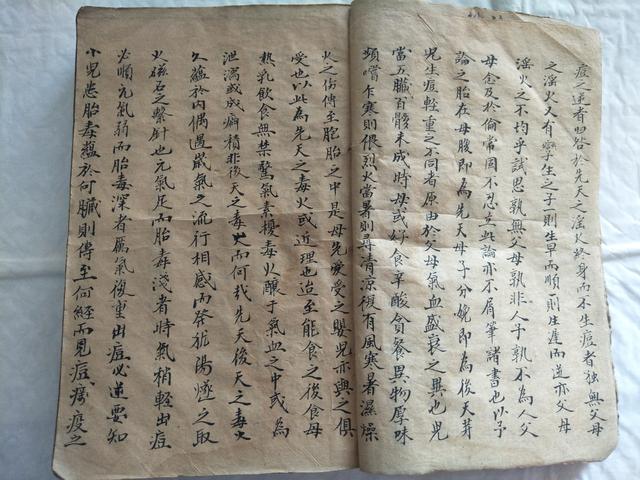 痘之逆者四咎於先天之淫火終身而不生痘者獨無父母
之淫火又有孿生之子則生早而順則生遲而逆亦父母
淫火之不均乎試思孰無父母孰非人子孰不為人父
母愈及於倫常固不忍言此論亦不屑筆諸書也以予
論之胎在母腹即為先天母子分娩即為後天其
兒生痘輕重之不同者原由於父母氣血盛衰之異也兒
當五臟百骸未成時母或好食辛酸貪餐異物厚味
頻嚐乍寒則偎烈火當暑則尋清涼復有風寒暑濕燥
火之傷傳至胞胎之中是母先受受之嬰兒亦與之俱
受也以此為先天之毒火或近理也迨至能食之後食母
熱乳飲食無禁驚氣素擾毒火釀于氣血之中或為
泄瀉或成癖積非後天之毒火而何哉先天後天之毒火
久蘊於內偶遇歲氣之流行相感而發旂陽燧之取
火磁石之繫針也元氣足而胎毒淺者時氣稍輕出痘
必順元氣弱而胎毒深者厲氣復重出痘必逆要知
小兒患胎毒蘊於何臟則傳至何經而見痘瘍疫之